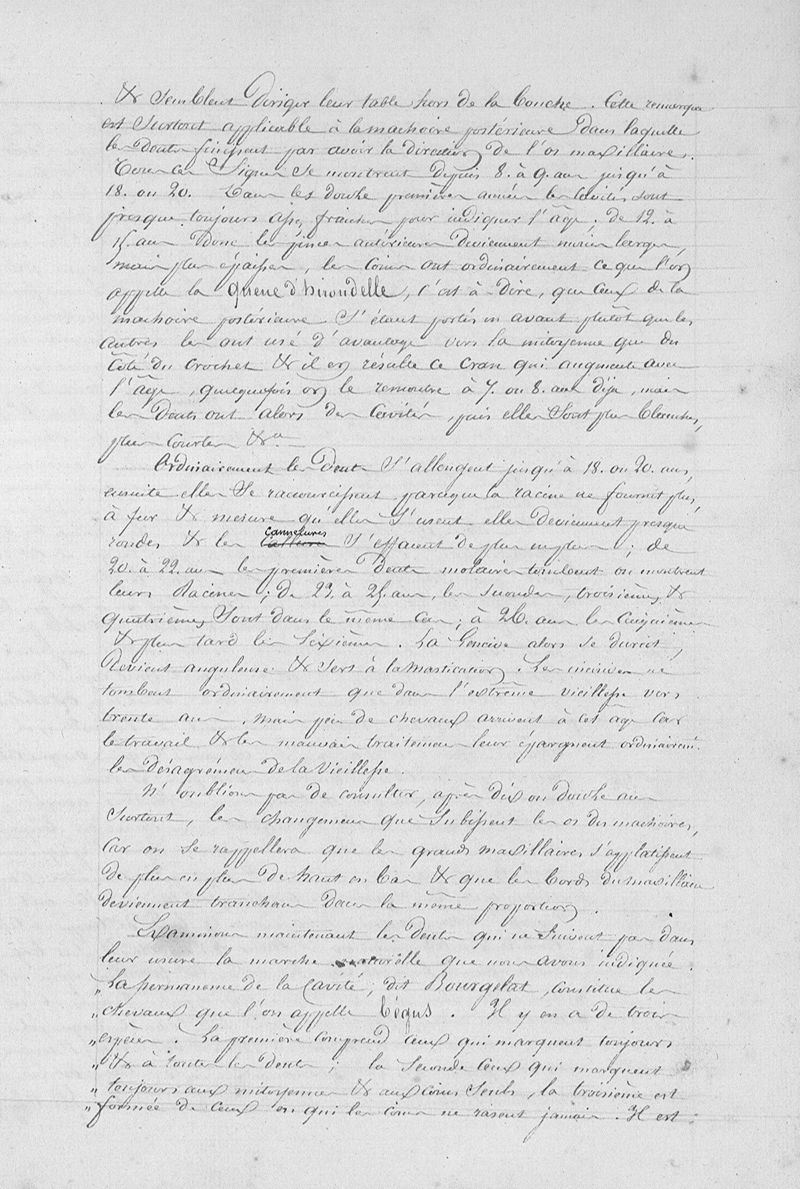 & semblent diriger leur table hors de la bouche. Cette remarque
est surtout applicable à la machoire postérieure dans laquelle
les dents finissent par avoir la direction de l'os maxillaire.
Tous ces signes se montrent depuis 8. à 9. ans jusqu'à
18. ou 20. Dans les douze premières années les cavités sont
presque toujours assez fraiches pour indiquer l'âge; de 12. à
15. ans donc les pinces antérieures deviennent moins larges,
mais plus épaisses, les coins ont ordinairement ce que l'on
appelle la queue d'hirondelle, c'est à dire, que ceux de la
machoire postérieure s'étant portés en avant plutot que les
autres les ont usé d'avantage vers la mitoyenne que du
côté du crochet & il en résulte ce cran qui augmente avec
l'âge, quequefois on le rencontre à 7. ou 8. ans déja, mais
les dents ont alors des cavités, puis elles sont plus blanches,
plus courtes &a
Ordinairement les dents s'allongent jusqu'à 18. ou 20. ans,
ensuite elles se raccourcissent parceque la racine ne fournit plus,
à fur & mesure qu'elles s'usent elles deviennent presque
rondes & les cannelures s'effacent de plus en plus; de
20. à 22. ans les premières dents molaires tombent ou montrent
leurs racines; de 23. à 25. ans, les secondes, troisièmes &
quatrièmes sont dans le même cas; à 26. ans les cinquièmes
& plus tard les sixièmes. La Gencive alors se durcit,
devient anguleuse & sert à la mastication. Les incisives ne
tombent ordinairement que dans l'extrême vieillesse vers
trente ans, mais peu de chevaux arrivent à cet age car
le travail & les mauvais traitemens leur épargnent ordinairemt
les désagrémens de la vieillesse.
N'oublions pas de consulter, après dix ou douze ans
surtout, les changemens que subissent les os des machoires,
car on se rappellera que les grands maxillaires s'applatissent
de plus en plus de haut en bas & que les bords du maxillaire
deviennent tranchans dans la même proportion.
Examinons maintenant les dents qui ne suivent pas dans
leur usure la marche naturelle que nous avons indiquée.
„La permanence de la cavité, dit Bourgelat, constitue les
„chevaux que l'on appelle bégus. Il y en a de trois
„espèces. La première comprend ceux qui marquent toujours
„& à toutes les dents; la seconde ceux qui marquent
„toujours aux mitoyennes & aux coins seuls, la troisième est
„formée de ceux en qui les coins ne rasent jamais. Il est